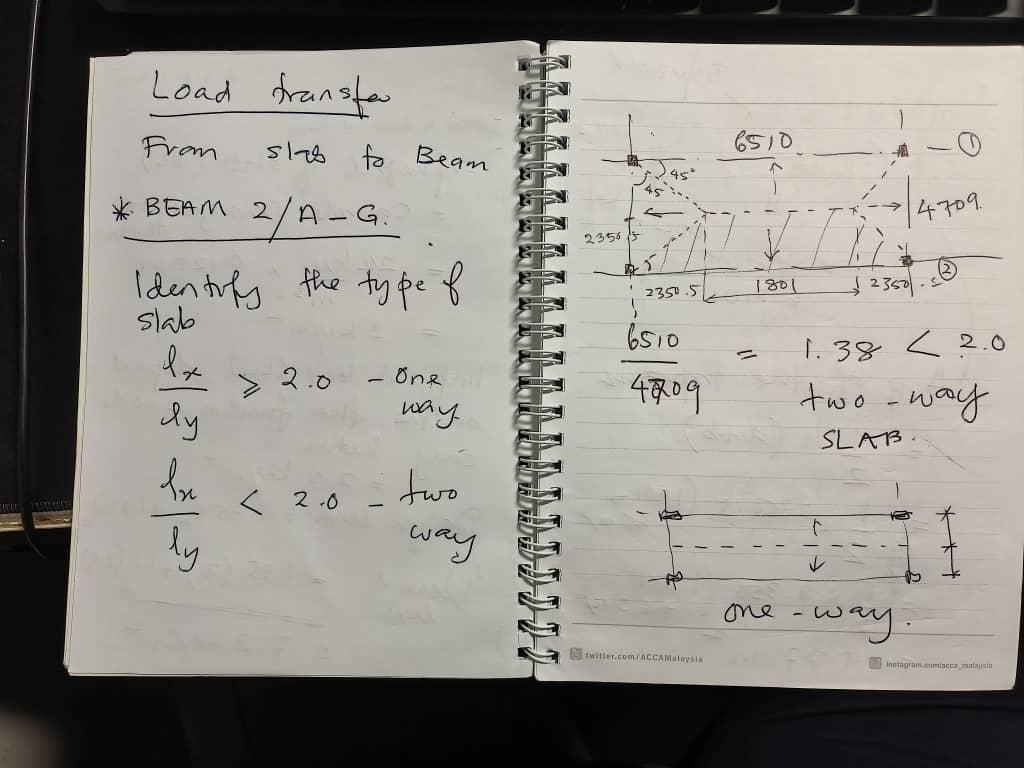 Load transfer
From slab to Beam
* BEAM 2/A-G.
Identify the type of
slab
lx/ly ⩾ 2.0 - one
way
lx/ly < 2.0 - two
way
6510
①
45°
45°
4709.
2350.5
②
2350.5
1801
2350.5
6510/4709 = 1.38 < 2.0
two-way
SLAB.
one-way.
twitter.com/ACCAMalaysia
instagram.com/acca_malaysia